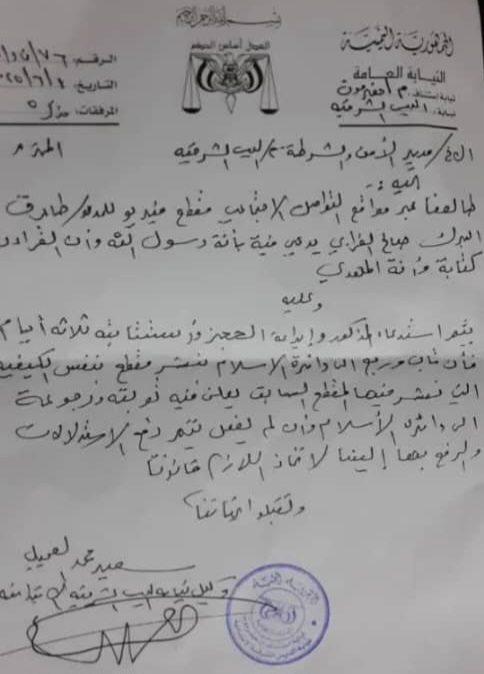 بسم الله الرحمن الرحيم
الجمهورية اليمنية
النيابة العامة
نيابة استئناف م/ حضرموت
نيابة: الديس الشرقية
العدل أساس الحكم
الرقم: ٧٦
التاريخ:
المرفقات:
الأخ/ مدير الأمن والشرطة م/ الديس الشرقية المحترم
التحية
طالعنا عبر مواقع التواصل الاجتماعي مقطع فيديو للمدعو/ طارق
صالح يدعي فيه بأنه رسول الله وأن القرآن
كتابة وأنه المهدي
وعليه
يتم استدعاء المذكور وإيداعه الحجز واستتابته ثلاثة أيام
فأن تاب ورجع الى دائرة الاسلام بنشر مقطع بنفس الكيفية
التي نشر فيها المقطع السابق يعلن فيه توبته ورجوعه
الى دائرة الأسلام وأن لم يفعل يتم رفع الاستدلالات
والرفع بها إلينا لاتخاذ اللازم قانونا
وتقبلوا تحياتنا
سعيد محمد
وكيل نيابة الديس الشرقية الابتدائية